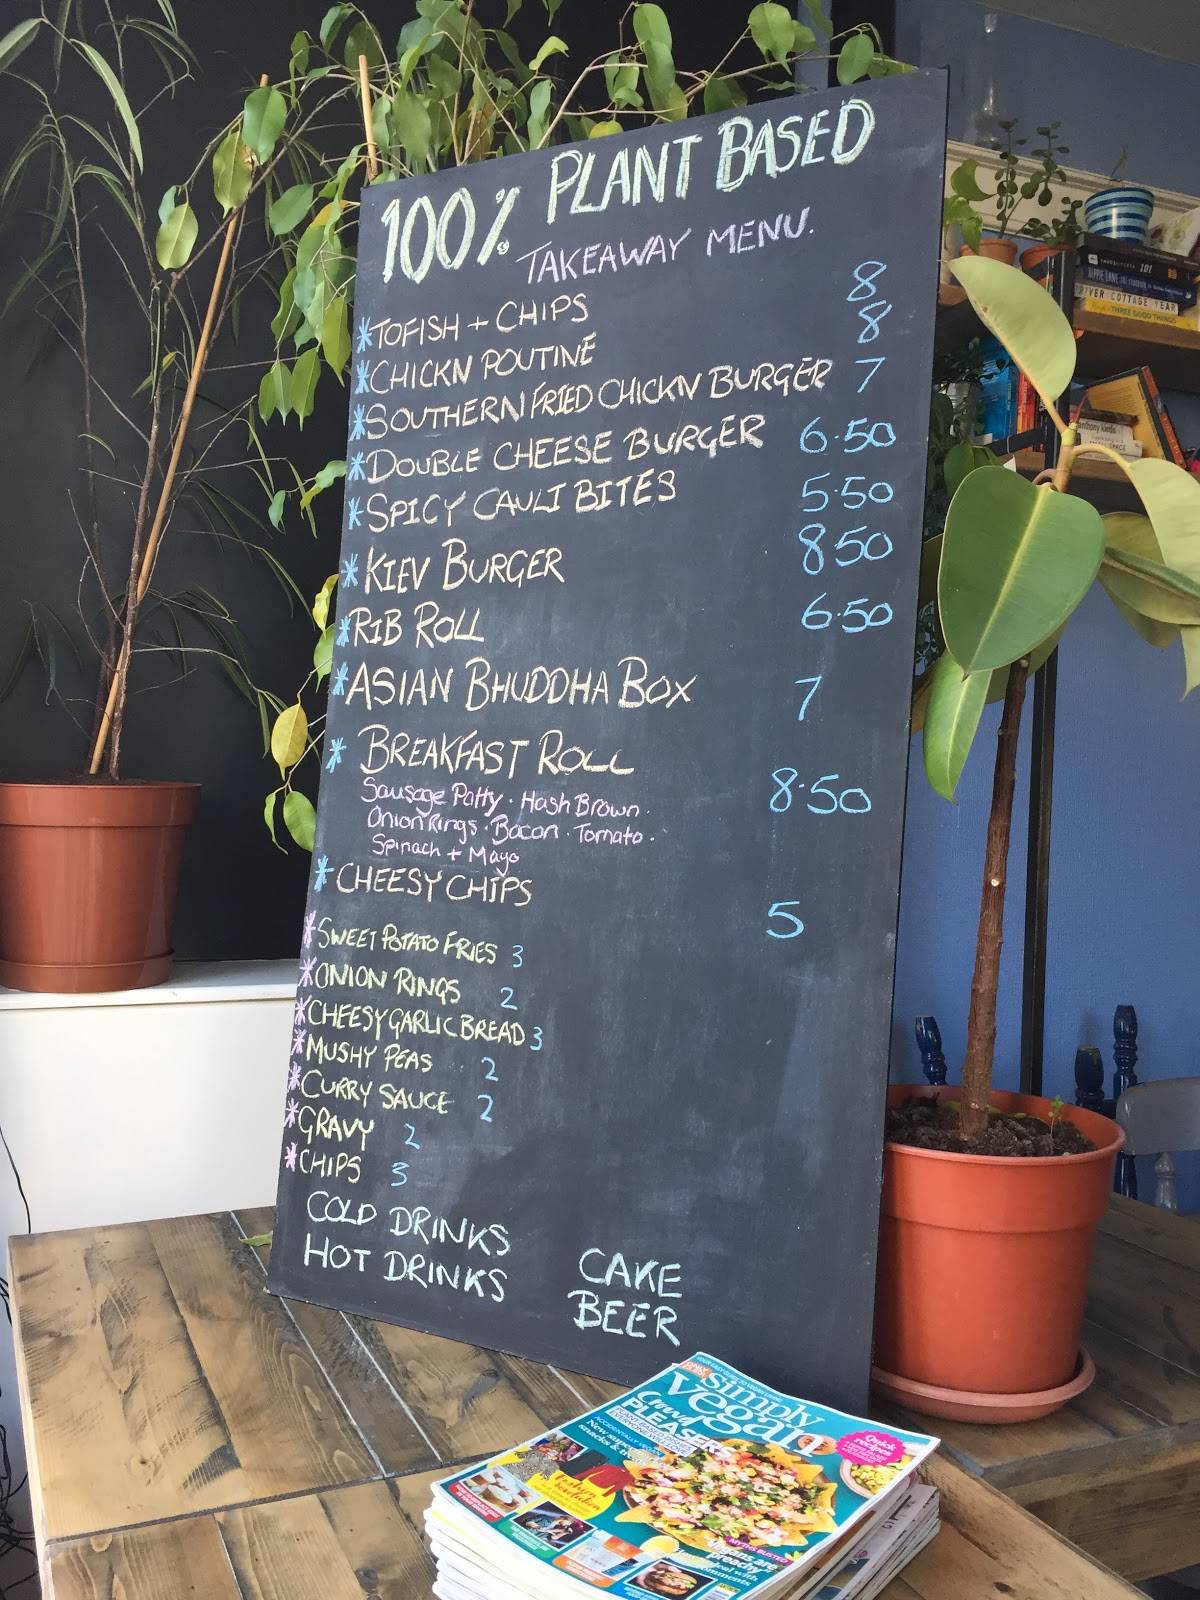 100% PLANT BASED
TAKEAWAY MENU.
*TOFISH + CHIPS 8
*CHICKN POUTINE 8
*SOUTHERN FRIED CHICKN BURGER 7
*DOUBLE CHEESE BURGER 6.50
*SPICY CAULI BITES 5.50
*KIEV BURGER 8.50
*RIB ROLL 6.50
*ASIAN BHUDDHA BOX 7
* BREAKFAST ROLL 8.50
Sausage Patty · Hash Brown ·
Onion Rings · Bacon · Tomato ·
Spinach + Mayo
*CHEESY CHIPS 5
*SWEET POTATO FRIES 3
*ONION RINGS 2
*CHEESY GARLIC BREAD 3
*MUSHY PEAS 2
*CURRY SAUCE 2
*GRAVY 2
*CHIPS 3
COLD DRINKS
HOT DRINKS
CAKE
BEER
simply
vegan
PLEASE
PLANT-BASED DISHES
EVERYONE WILL LOVE!
ACCIDENTALLY VEGAN
Quick
recipes
MYTHS BUSTED!
Vegans are
preachy
RIVER COTTAGE YEAR
THREE GOOD THINGS
101